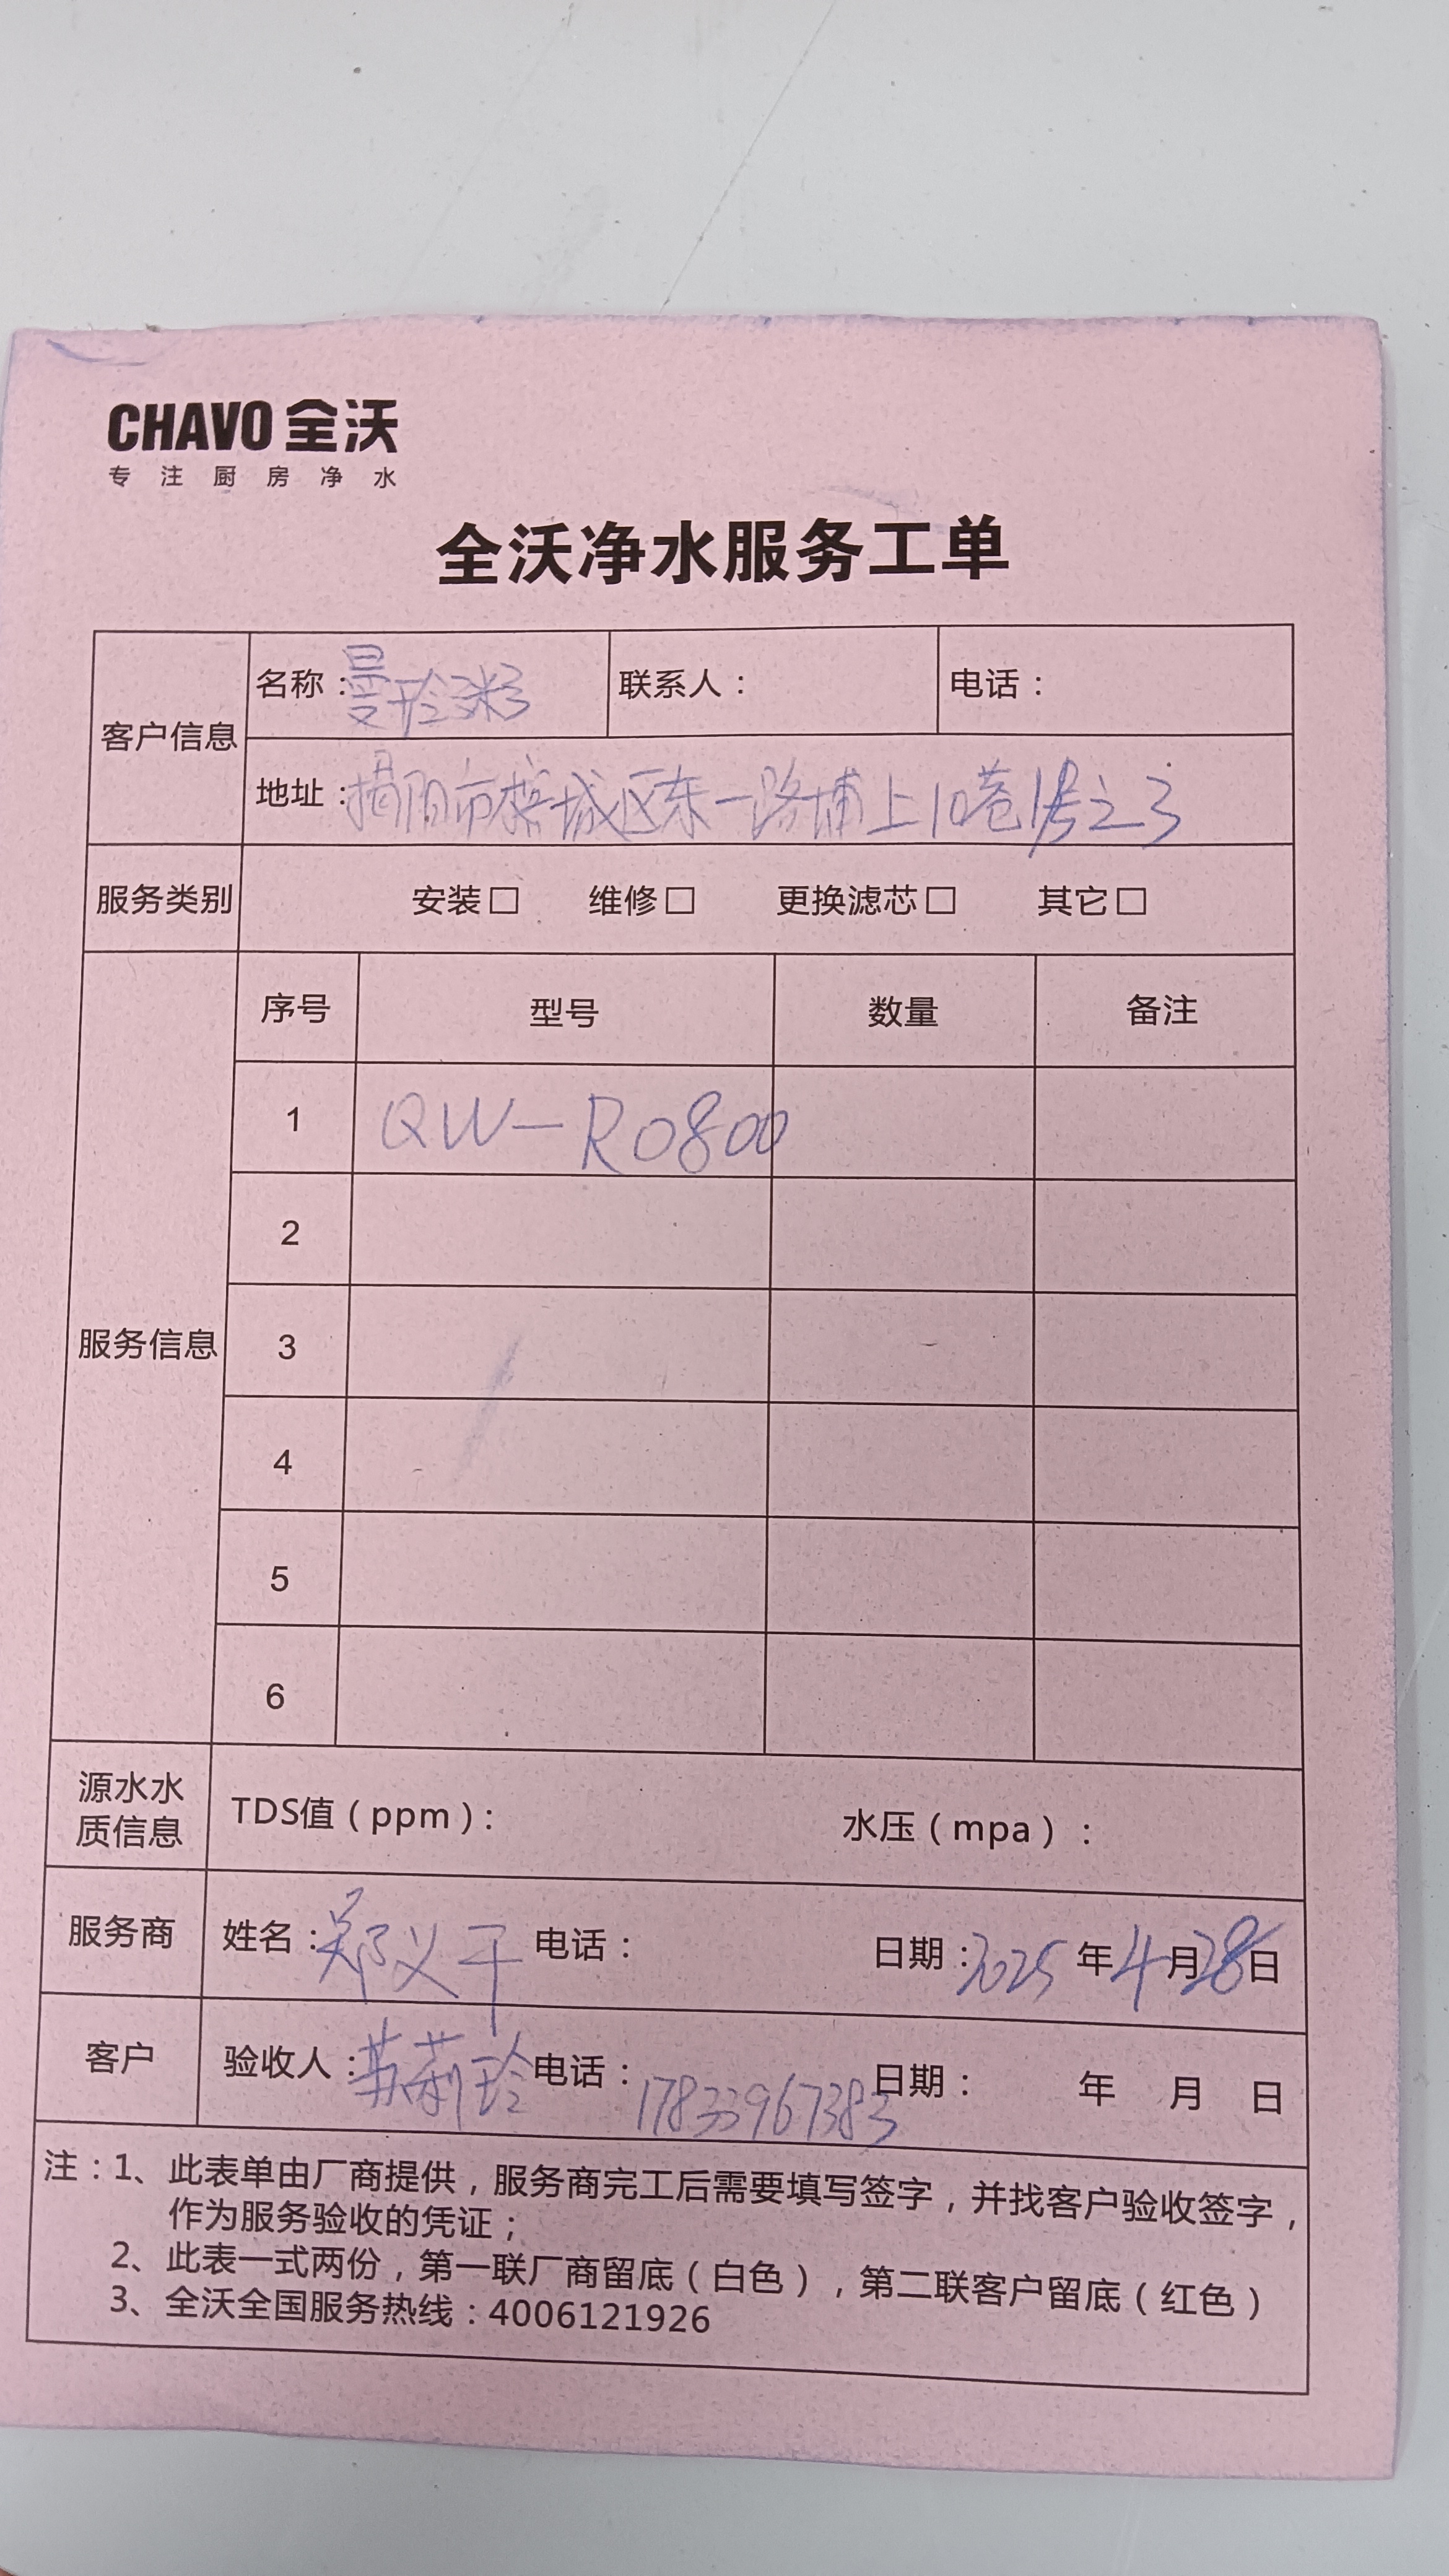 CHAVO 全沃
专注厨房净水
全沃净水服务工单
客户信息
名称：曼玲粥 联系人： 电话：
地址：揭阳市榕城区东一路埔上10巷1号之3
服务类别 安装□ 维修□ 更换滤芯□ 其它□
服务信息
序号 型号 数量 备注
1 QW-RO800
2
3
4
5
6
源水水质信息 TDS值（ppm）： 水压（mpa）：
服务商 姓名：郑义干 电话： 日期：2025年4月28日
客户 验收人：苏莉玲 电话：17833967383 日期： 年 月 日
注：1、此表单由厂商提供，服务商完工后需要填写签字，并找客户验收签字，
作为服务验收的凭证；
2、此表一式两份，第一联厂商留底（白色），第二联客户留底（红色）
3、全沃全国服务热线：4006121926